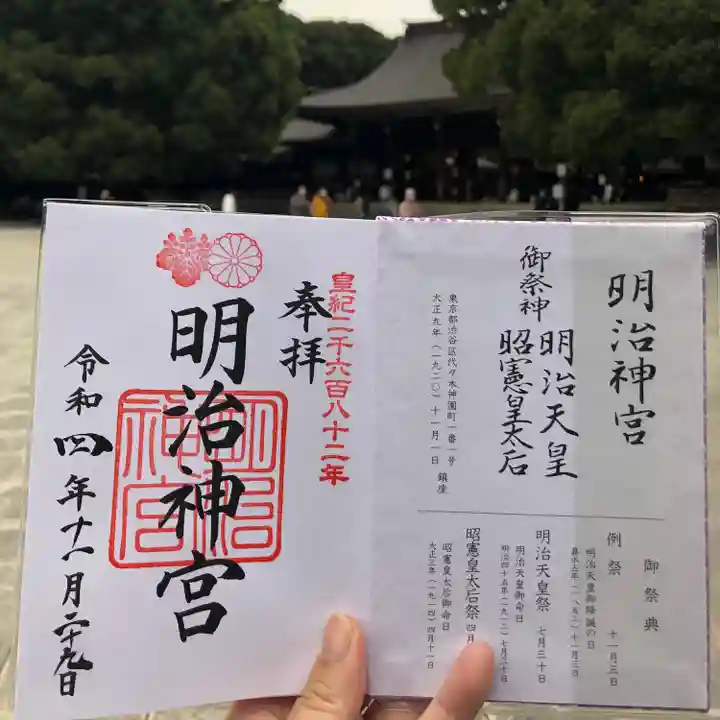 明治神宮
御祭神
明治天皇
昭憲皇太后
東京都渋谷区代々木神園町一番一号
大正九年(一九二〇)十一月一日 鎮座
御祭典
例祭 十一月三日
明治天皇御降誕の日
嘉永五年(一八五二)十一月三日
明治天皇祭 七月三十日
明治天皇御命日
明治四十五年(一九一二)七月三十日
昭憲皇太后祭 四月
昭憲皇太后御命日
大正三年(一九一四)四月十一日
皇紀二千六百八十二年
奉拝
明治神宮
明治神宮
令和四年十一月二十九日